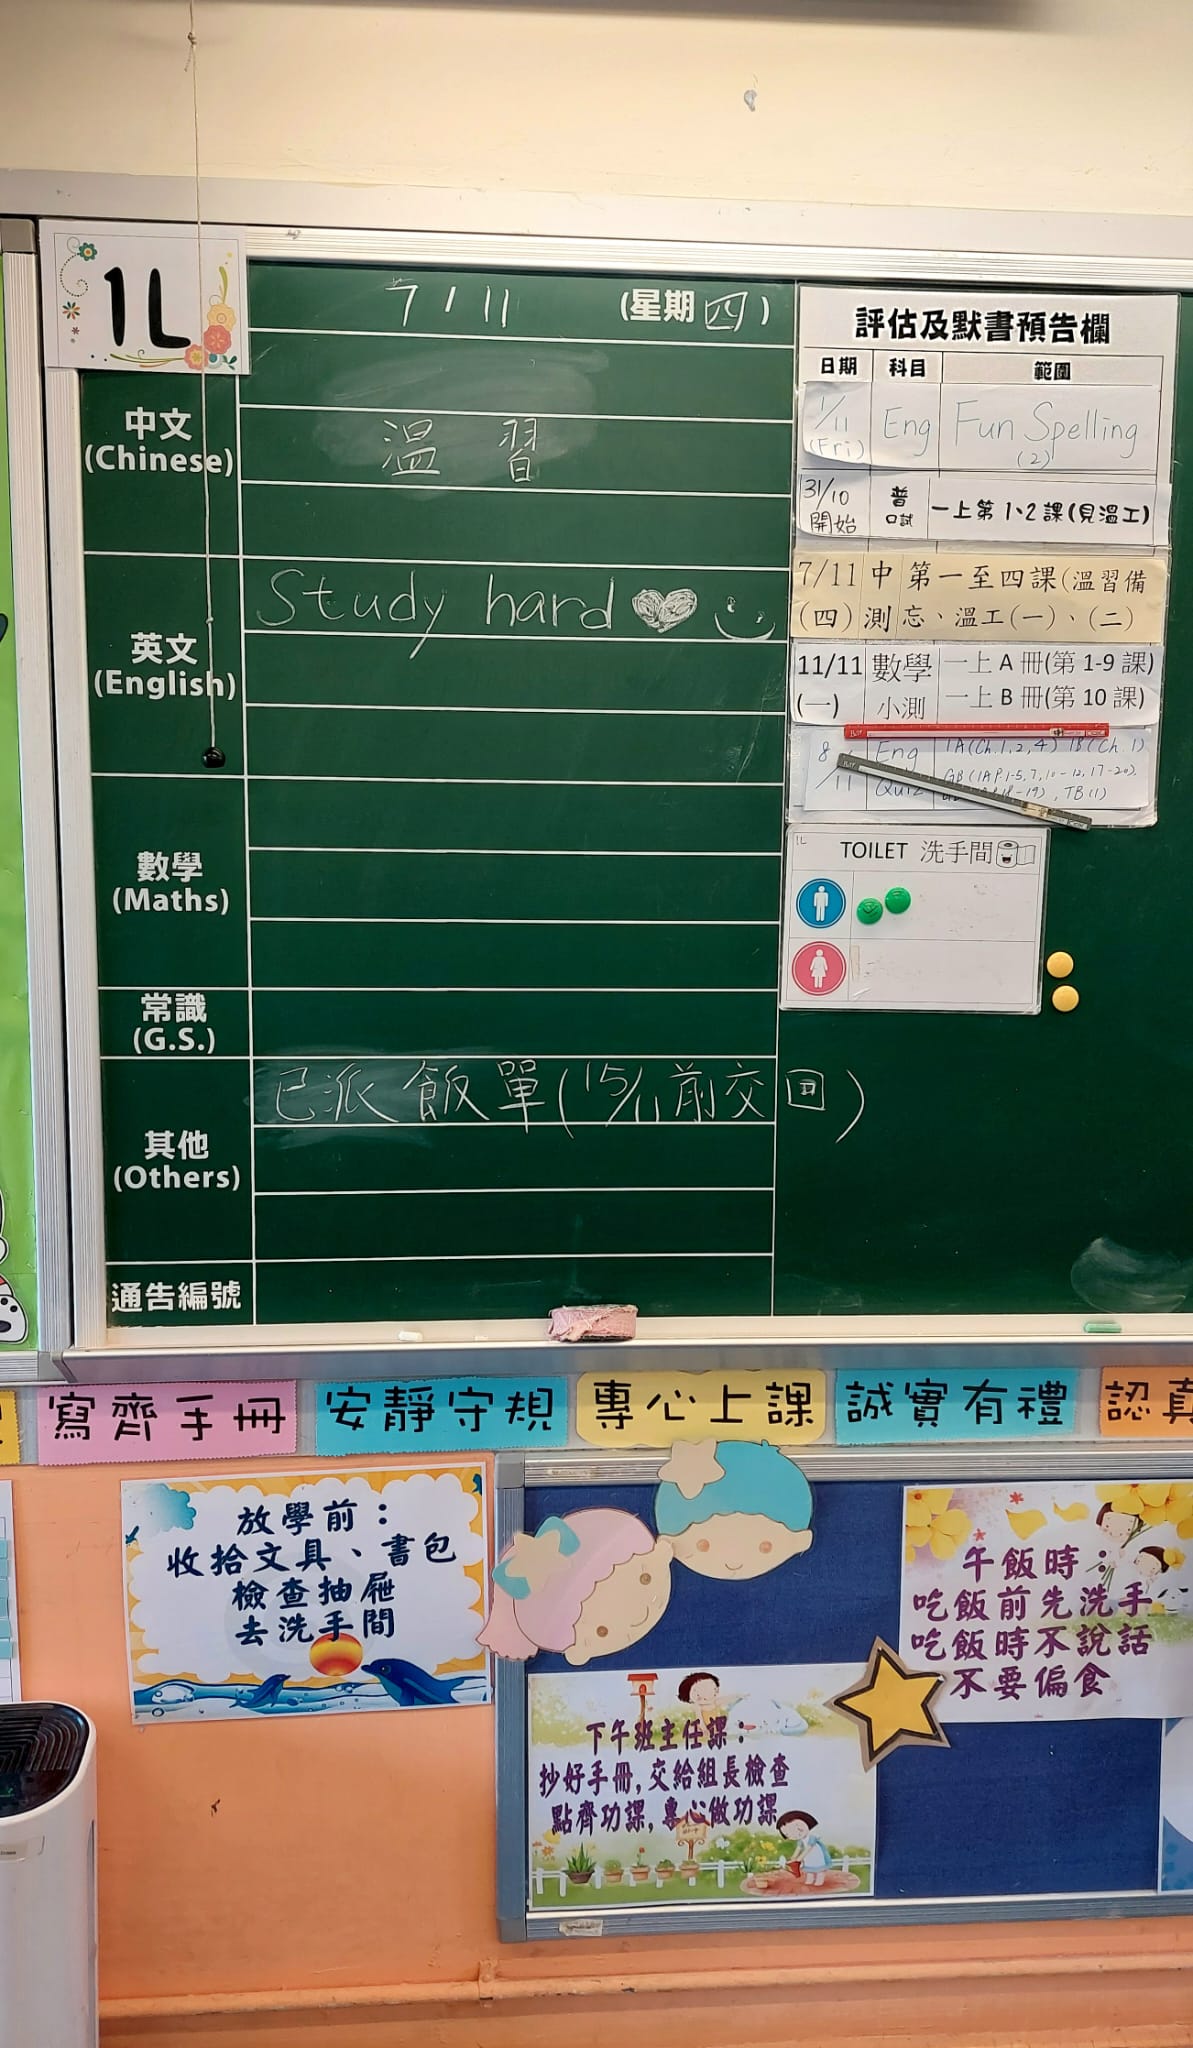 1L
7/11 (星期四)
中文
(Chinese)
溫習
英文
(English)
Study hard
數學
(Maths)
常識
(G.S.)
其他
(Others)
已派飯單(15/11前交回)
通告編號
評估及默書預告欄
日期 科目 範圍
1/11 (Fri) Eng Fun Spelling (2)
31/10 開始 普 口試 一上第1、2課(見溫工)
7/11 中 第一至四課(溫習備
(四) 測 忘、溫工(一)、(二)
11/11 數學 一上A冊(第1-9課)
(一) 小測 一上B冊(第10課)
8/11 Eng Quiz 1A(Ch.1,2,4) 1B(Ch.1)
GB(1A P.1-5,7,10-12,17-20),
18-19), TB(1)
1L
TOILET 洗手間
寫齊手冊
安靜守規
專心上課
誠實有禮
認真
放學前：
收拾文具、書包
檢查抽屜
去洗手間
午飯時：
吃飯前先洗手
吃飯時不說話
不要偏食
下午班主任課：
抄好手冊,交給組長檢查
點齊功課,專心做功課